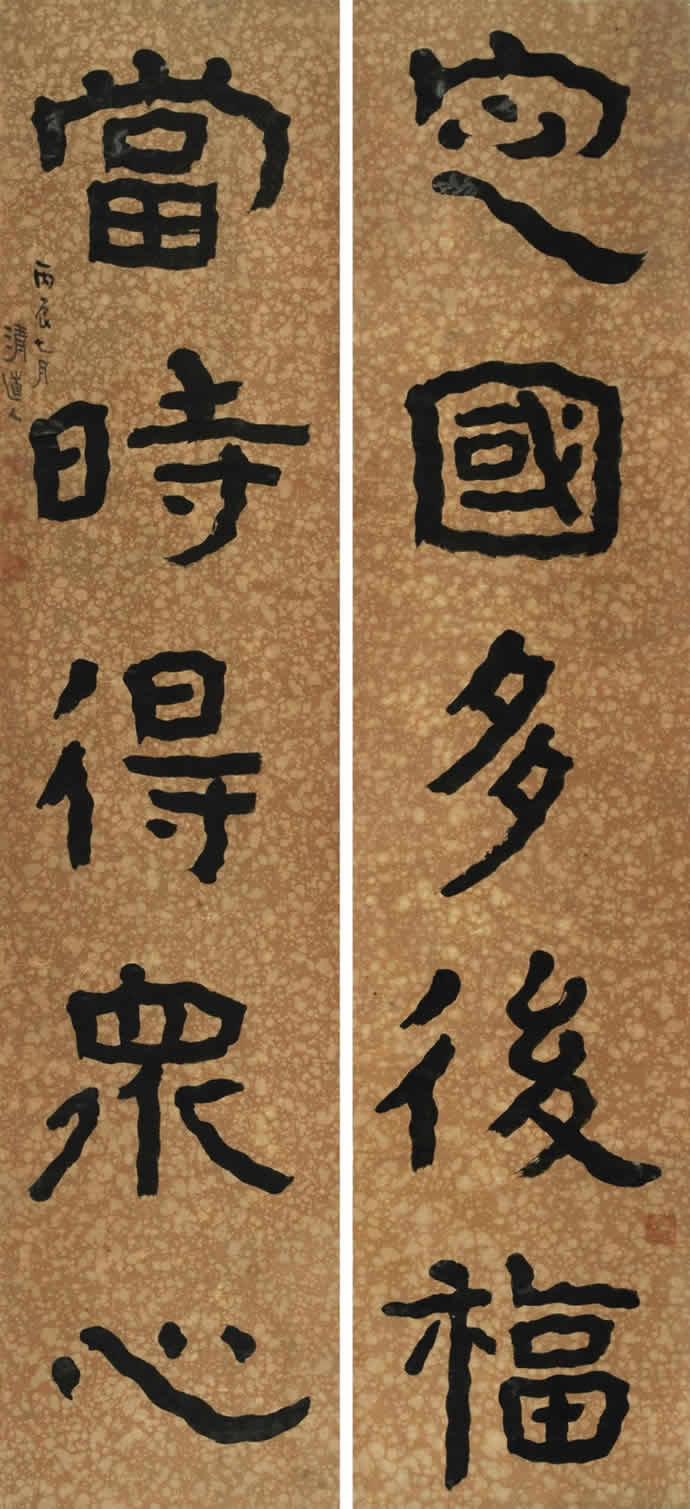 定國多後福
當時得衆心
丙辰七月
清道人